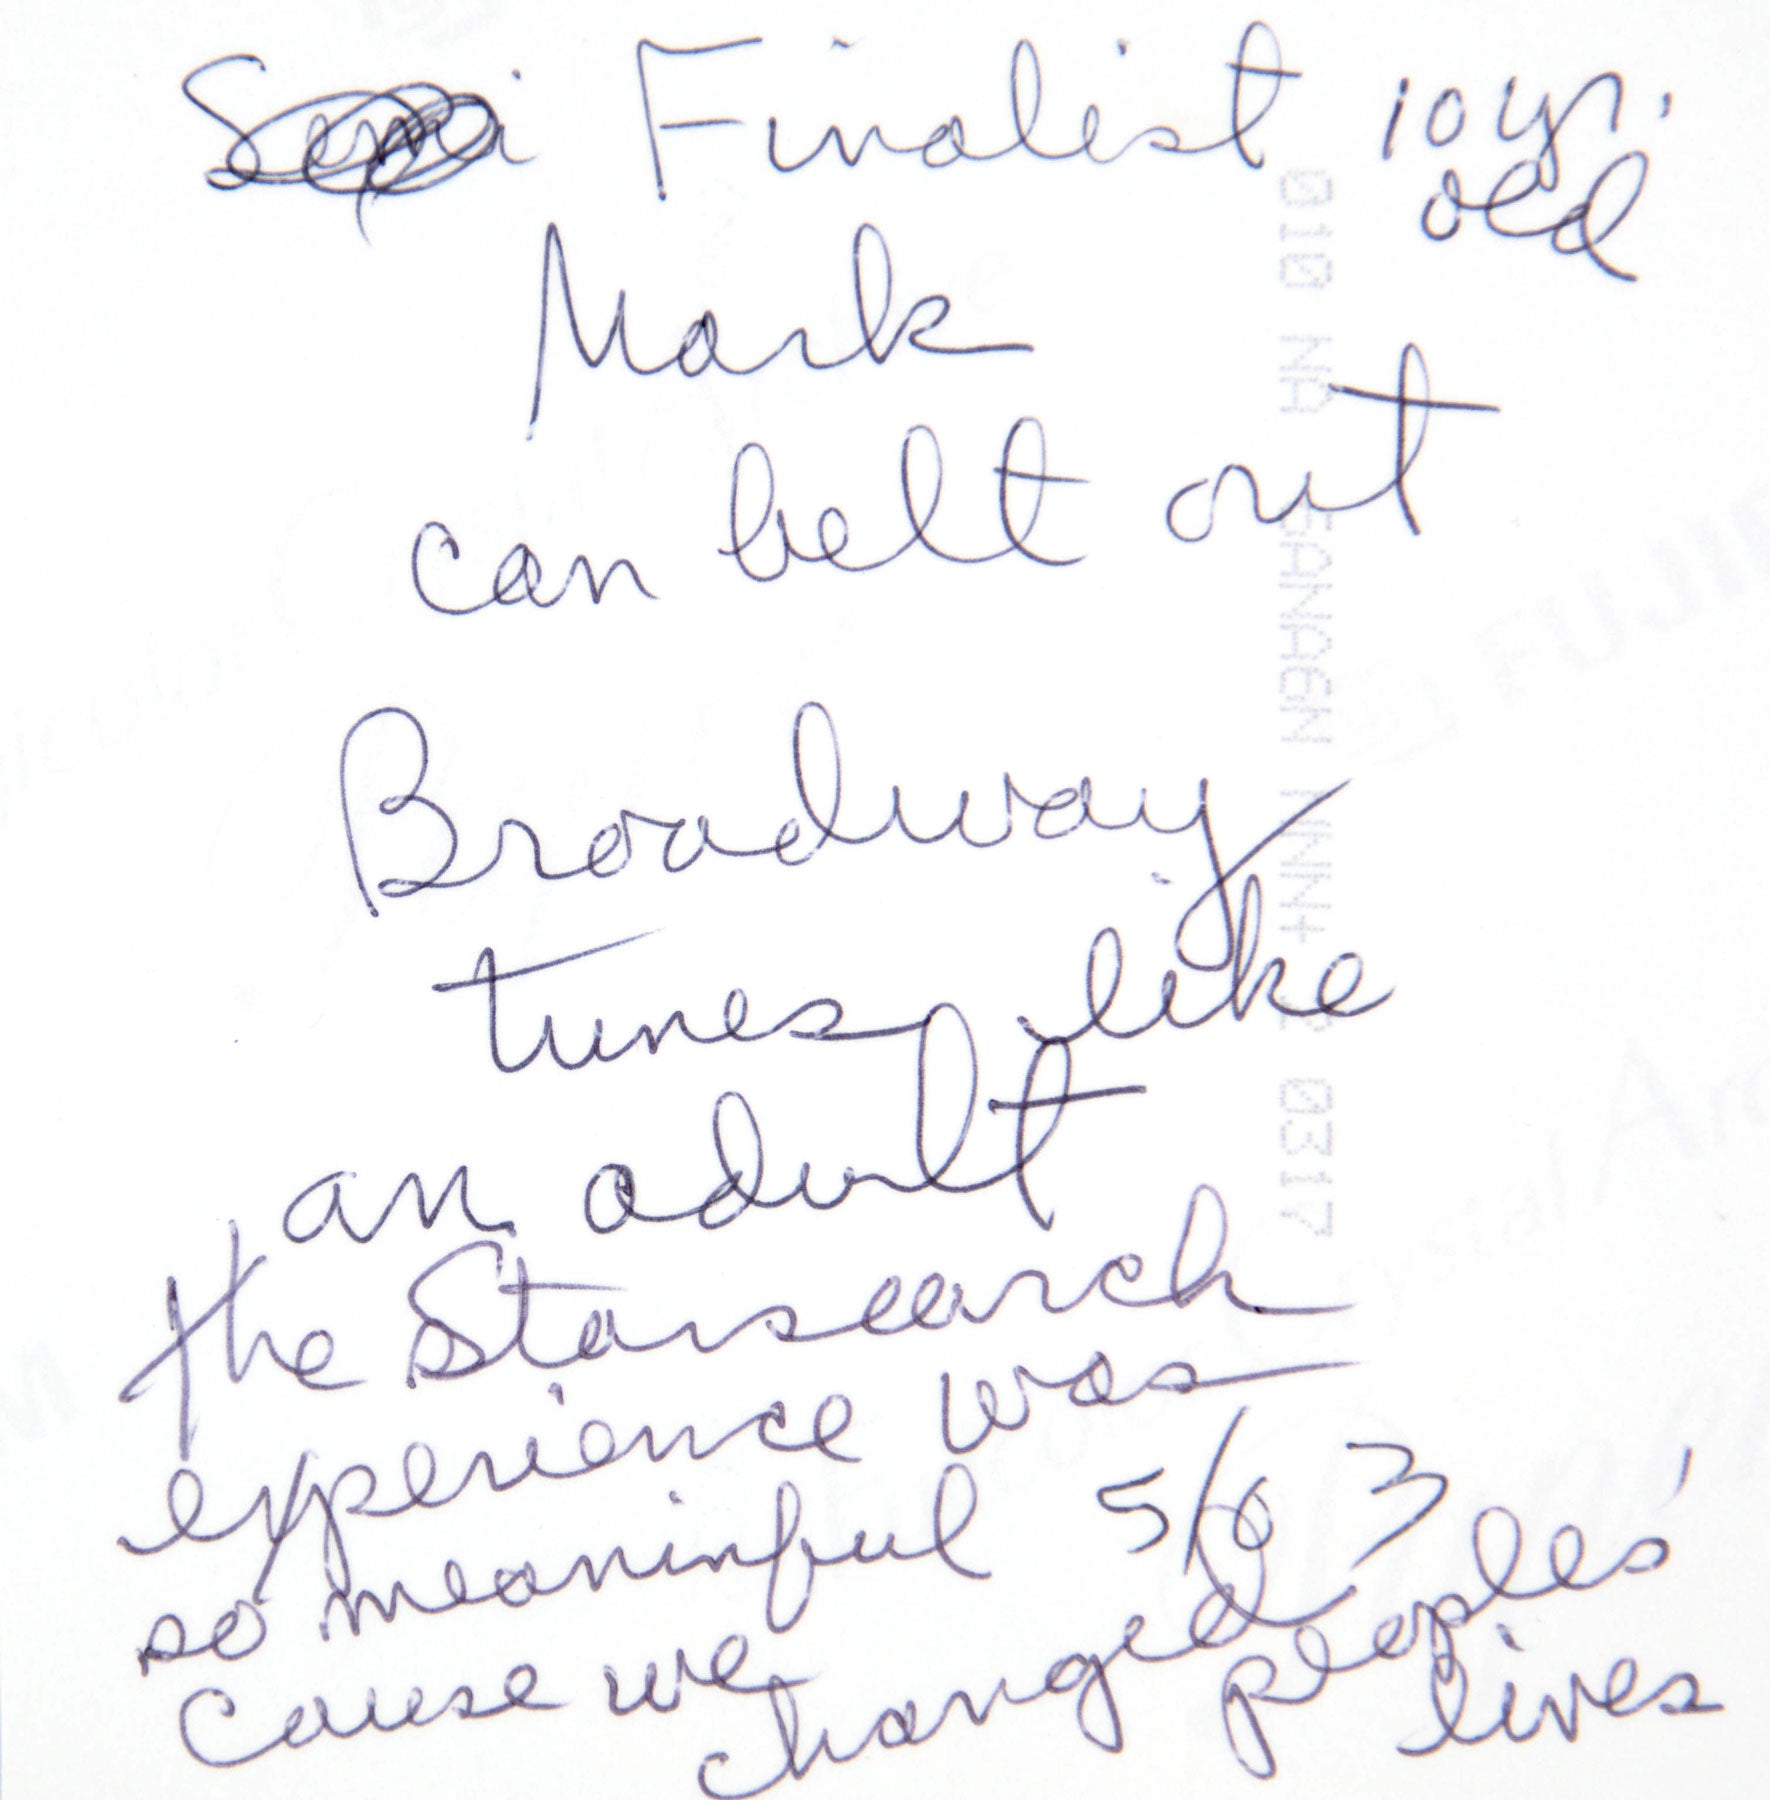 Semi Finalist 10 yr.
old
Mark
can belt out
Broadway
tunes like
an adult
the Starsearch
experience was
so meaninful 5/03
cause we changed peoples'
lives